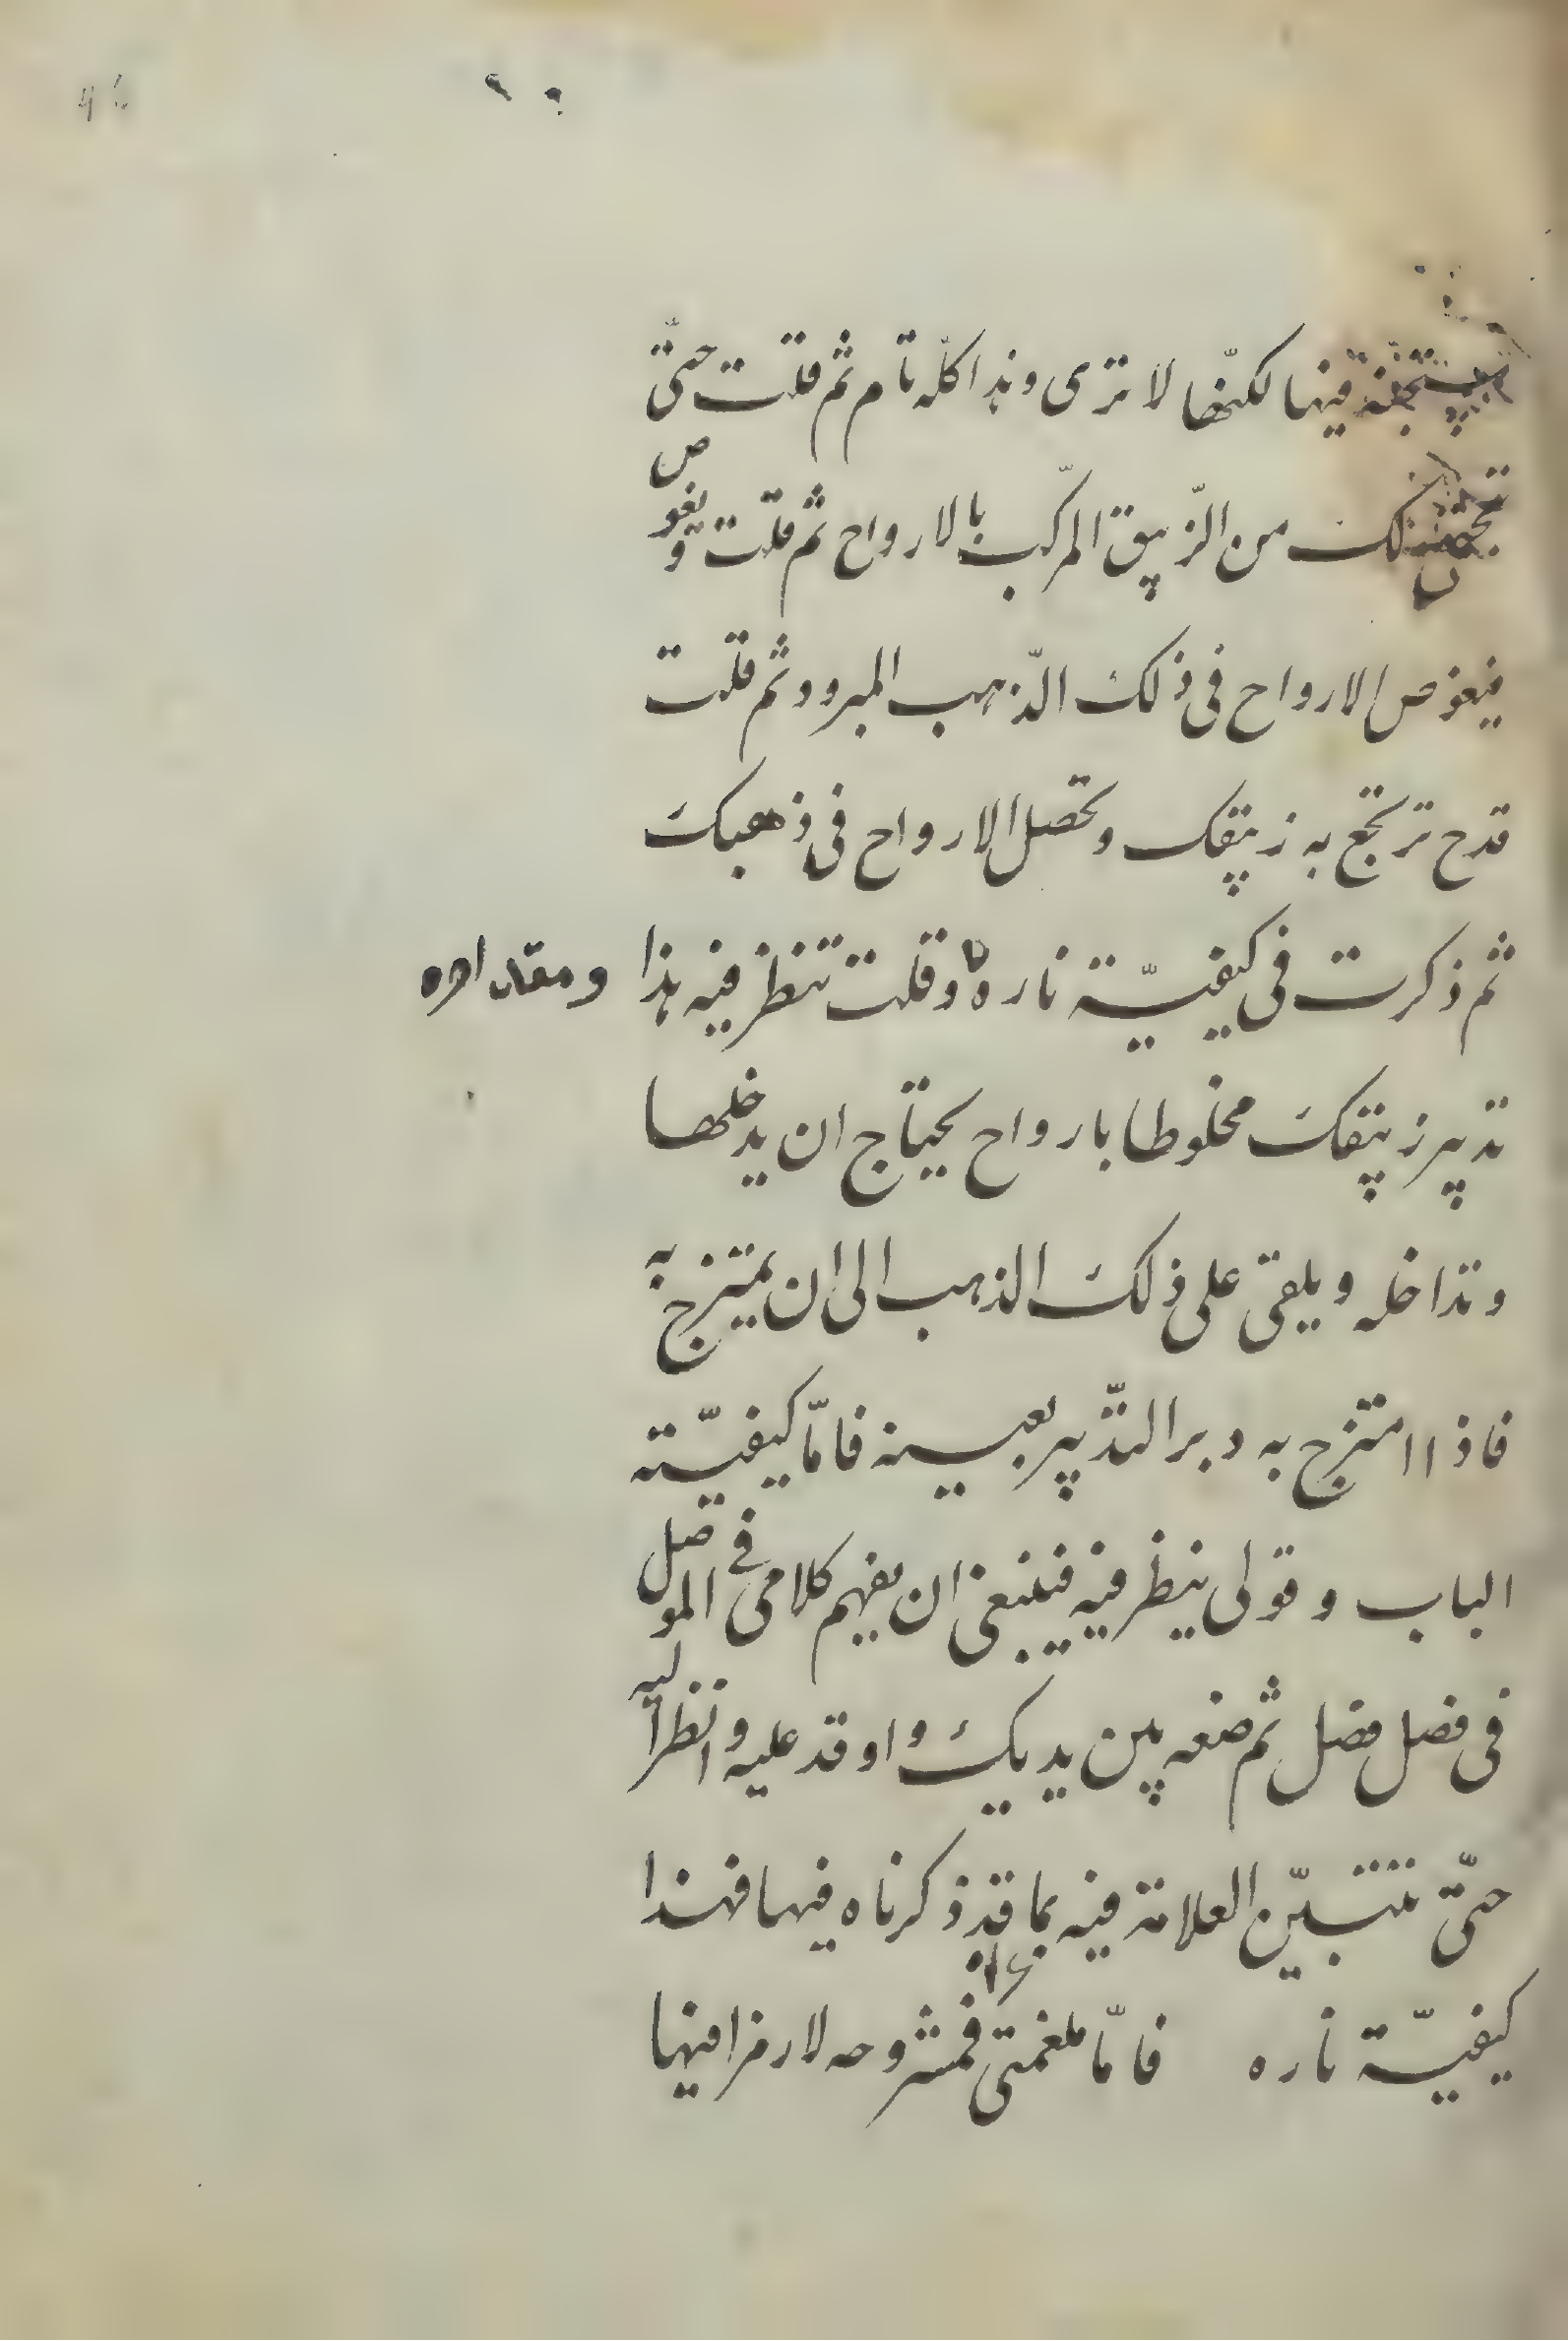 فيها لكنّها لا ترى وهذا كلّه تام ثم قلت حتّى
لك من الزّيبق المركّب بالارواح ثم قلت ويغوص
فيغوص الارواح فى ذلك الذّهب المبرود ثم قلت
قدح ترتجع به زيبقك وتحصل الارواح فى ذهبك
ثم ذكرت فى كيفيّة ناره وقلت تنظر فيه هذا
ومقداره
تدبير زيبقك مخلوطا بارواح يحتاج ان يدخلها
وتداخله ويلقى على ذلك الذهب الى ان يمتزج به
فاذا امتزج به دبر التدّبير بعينه فامّا كيفيّته
الباب وقولى ينظر فيه فينبغى ان يفهم كلامى فى الموصل
فى فصل فصل ثم ضعه بين يديك واوقد عليه وانظر اليه
حتّى تتبيّن العلامة فيه بما قد ذكرناه فيها فهذا
كيفيّة ناره فامّا ملغمتى فمشروحه لا رمزا فيها